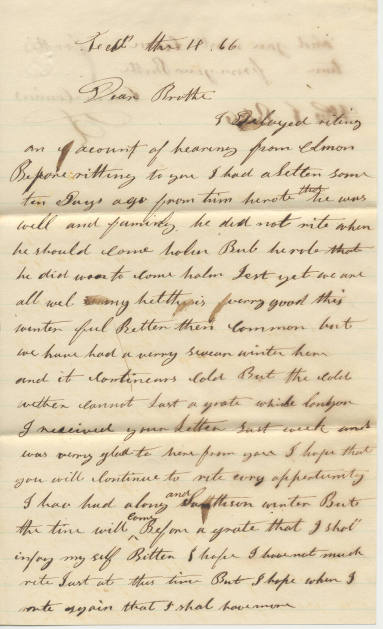 the 18 66
Dear Brothe
I Delayed riting
on acount of hearing from Edmon
Before ritting to you I had a letter some
ten Days ago from him he rote that he was
well and family he did not rite when
he should Come hom But he rote that
he did want to Come hom Jest yet we are
all wel my helth is verry good this
winter ful Better then Common but
we have had a verry winter here
and it Continers Cold But the Cold
wether Cannot last a grate while longer
I received your letter last week and
was verry glad to here from you I hope that
you will Continue to rite evry oppertunity
I hav had a long and winter But
the time will Come Before a grate that I shal
injoy my self Better I hope I have not much
rite Just at this time But I hope when I
rote again that I shal have more